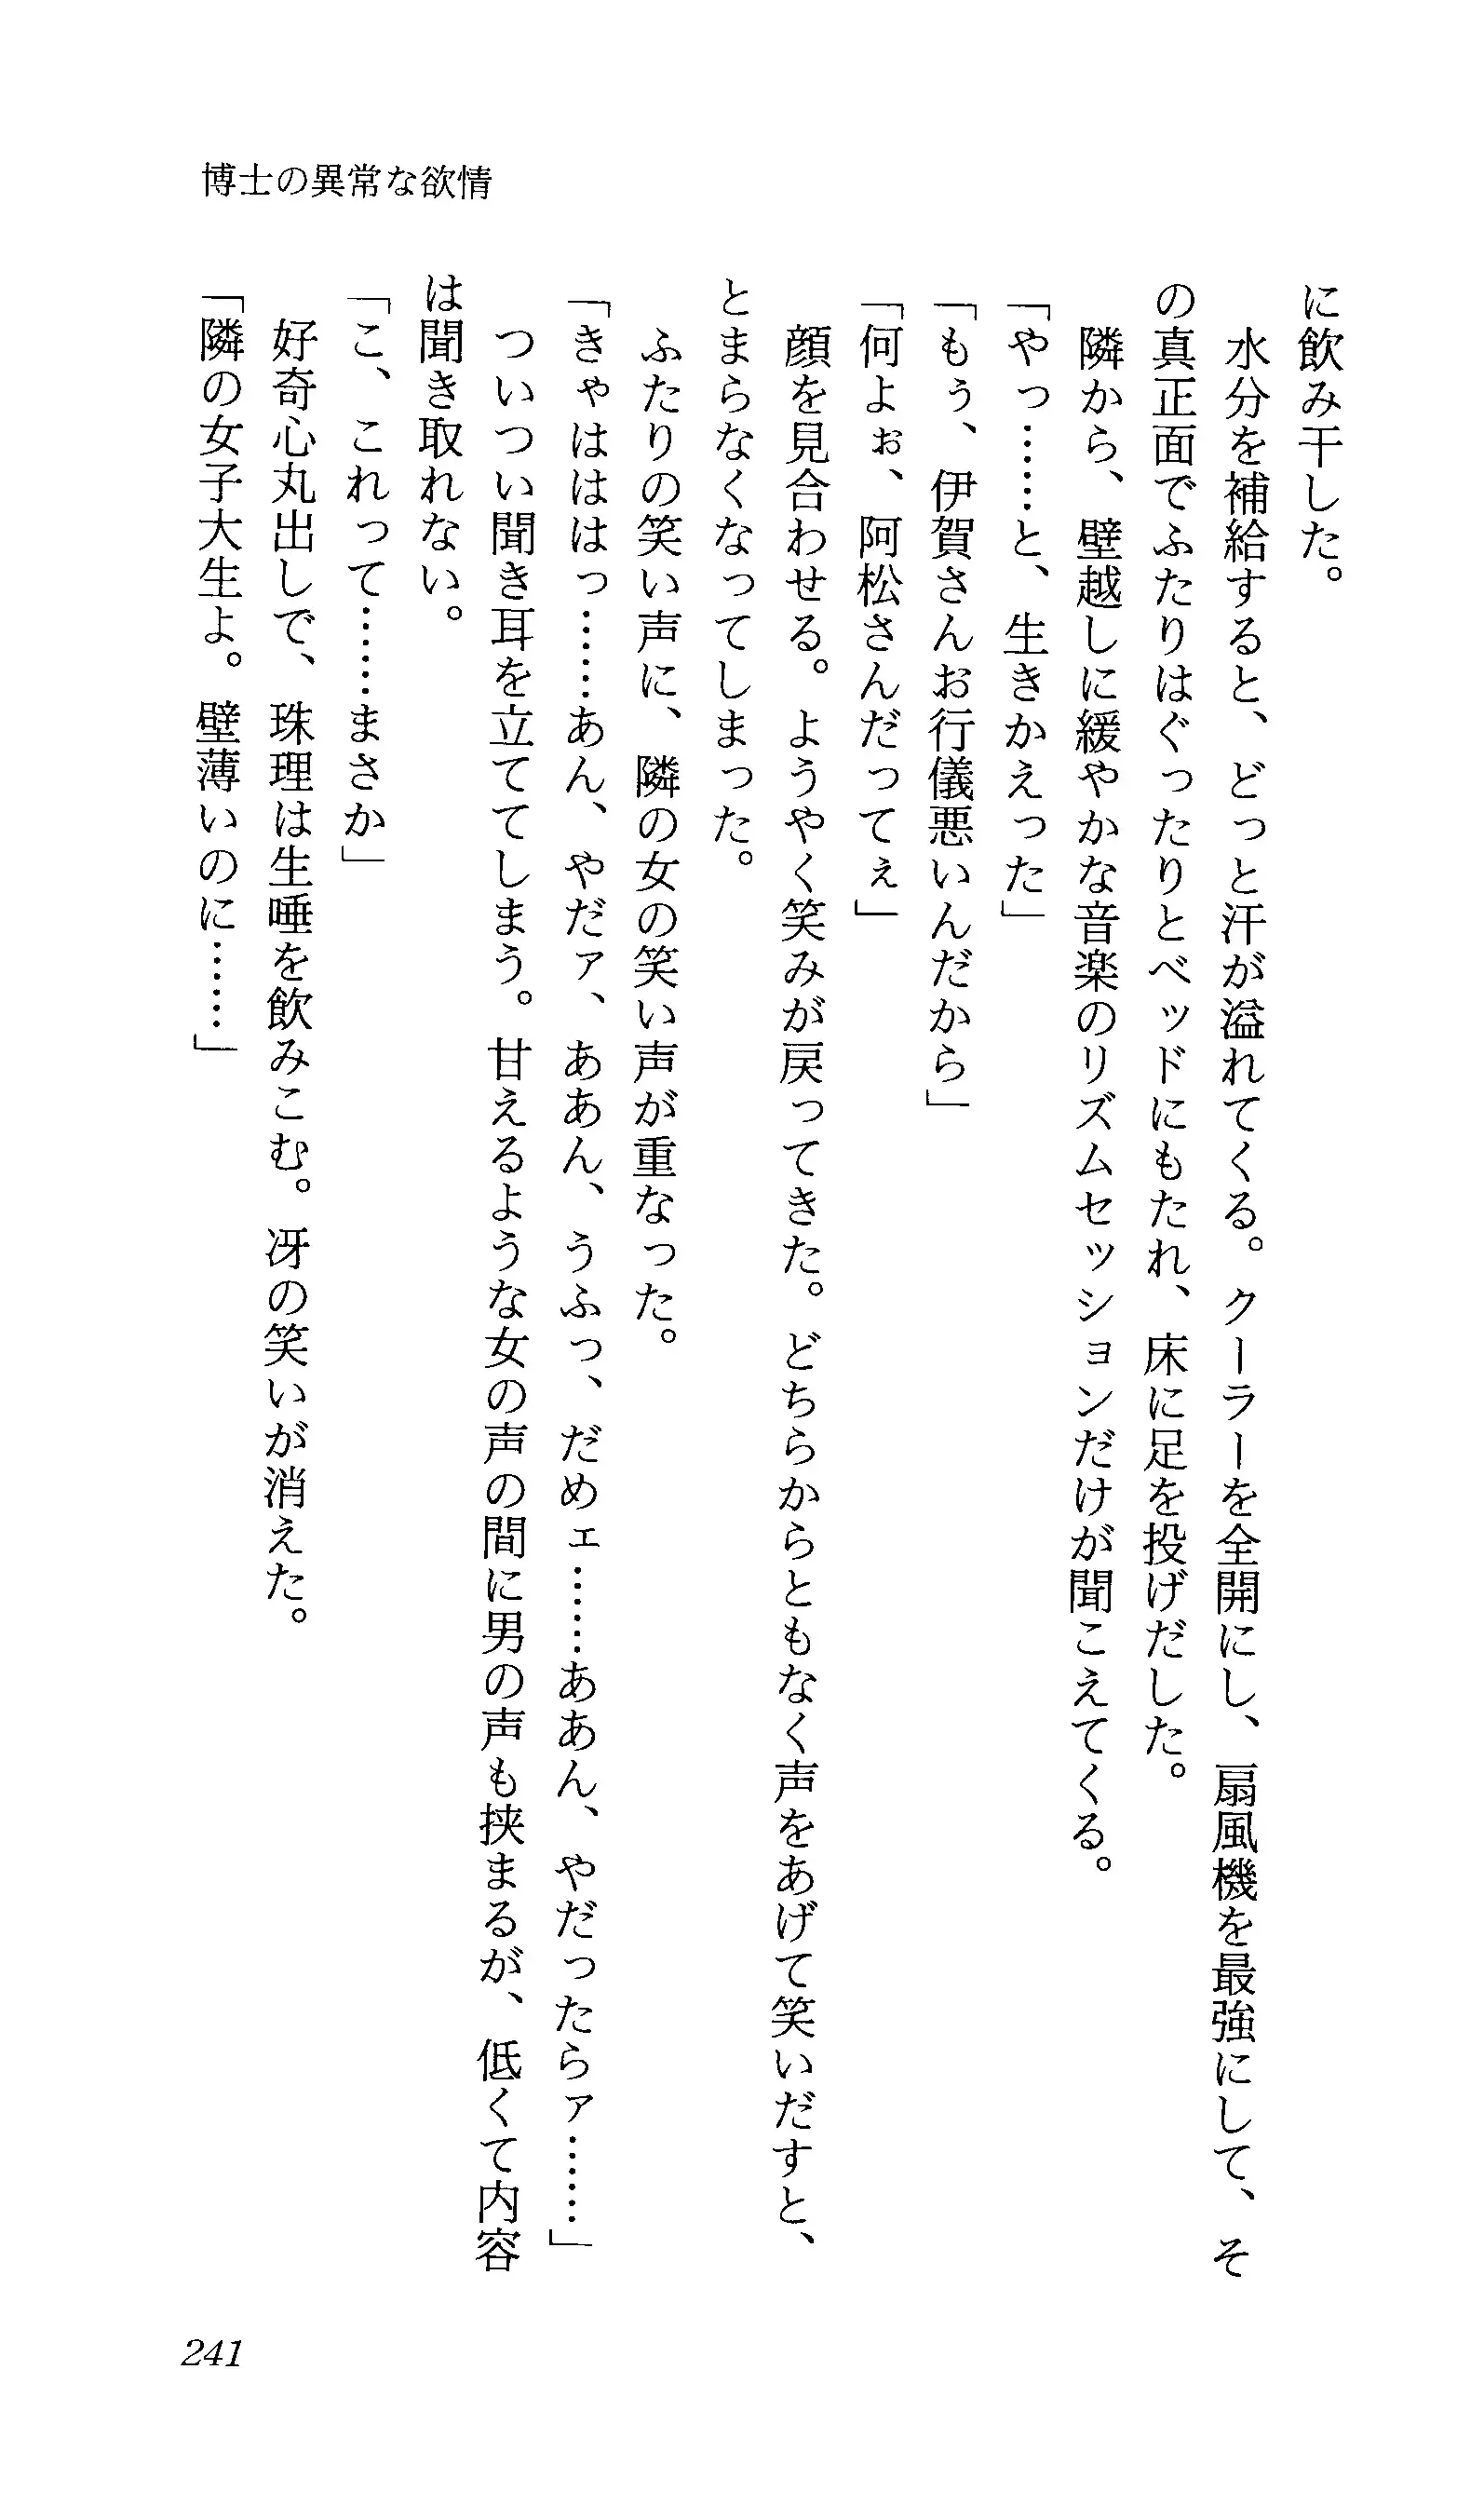 博士の異常な欲情
に飲み干した。
　水分を補給すると、どっと汗が溢れてくる。クーラーを全開にし、扇風機を最強にして、そ
の真正面でふたりはぐったりとベッドにもたれ、床に足を投げだした。
　隣から、壁越しに緩やかな音楽のリズムセッションだけが聞こえてくる。
「やっ……と、生きかえった」
「もぅ、伊賀さんお行儀悪いんだから」
「何よぉ、阿松さんだってぇ」
　顔を見合わせる。ようやく笑みが戻ってきた。どちらからともなく声をあげて笑いだすと、
とまらなくなってしまった。
　ふたりの笑い声に、隣の女の笑い声が重なった。
「きゃはははっ……あん、やだァ、ああん、うふっ、だめェ……ああん、やだったらァ……」
　ついつい聞き耳を立ててしまう。甘えるような女の声の間に男の声も挟まるが、低くて内容
は聞き取れない。
「こ、これって……まさか」
　好奇心丸出しで、珠理は生唾を飲みこむ。冴の笑いが消えた。
「隣の女子大生よ。壁薄いのに……」
241